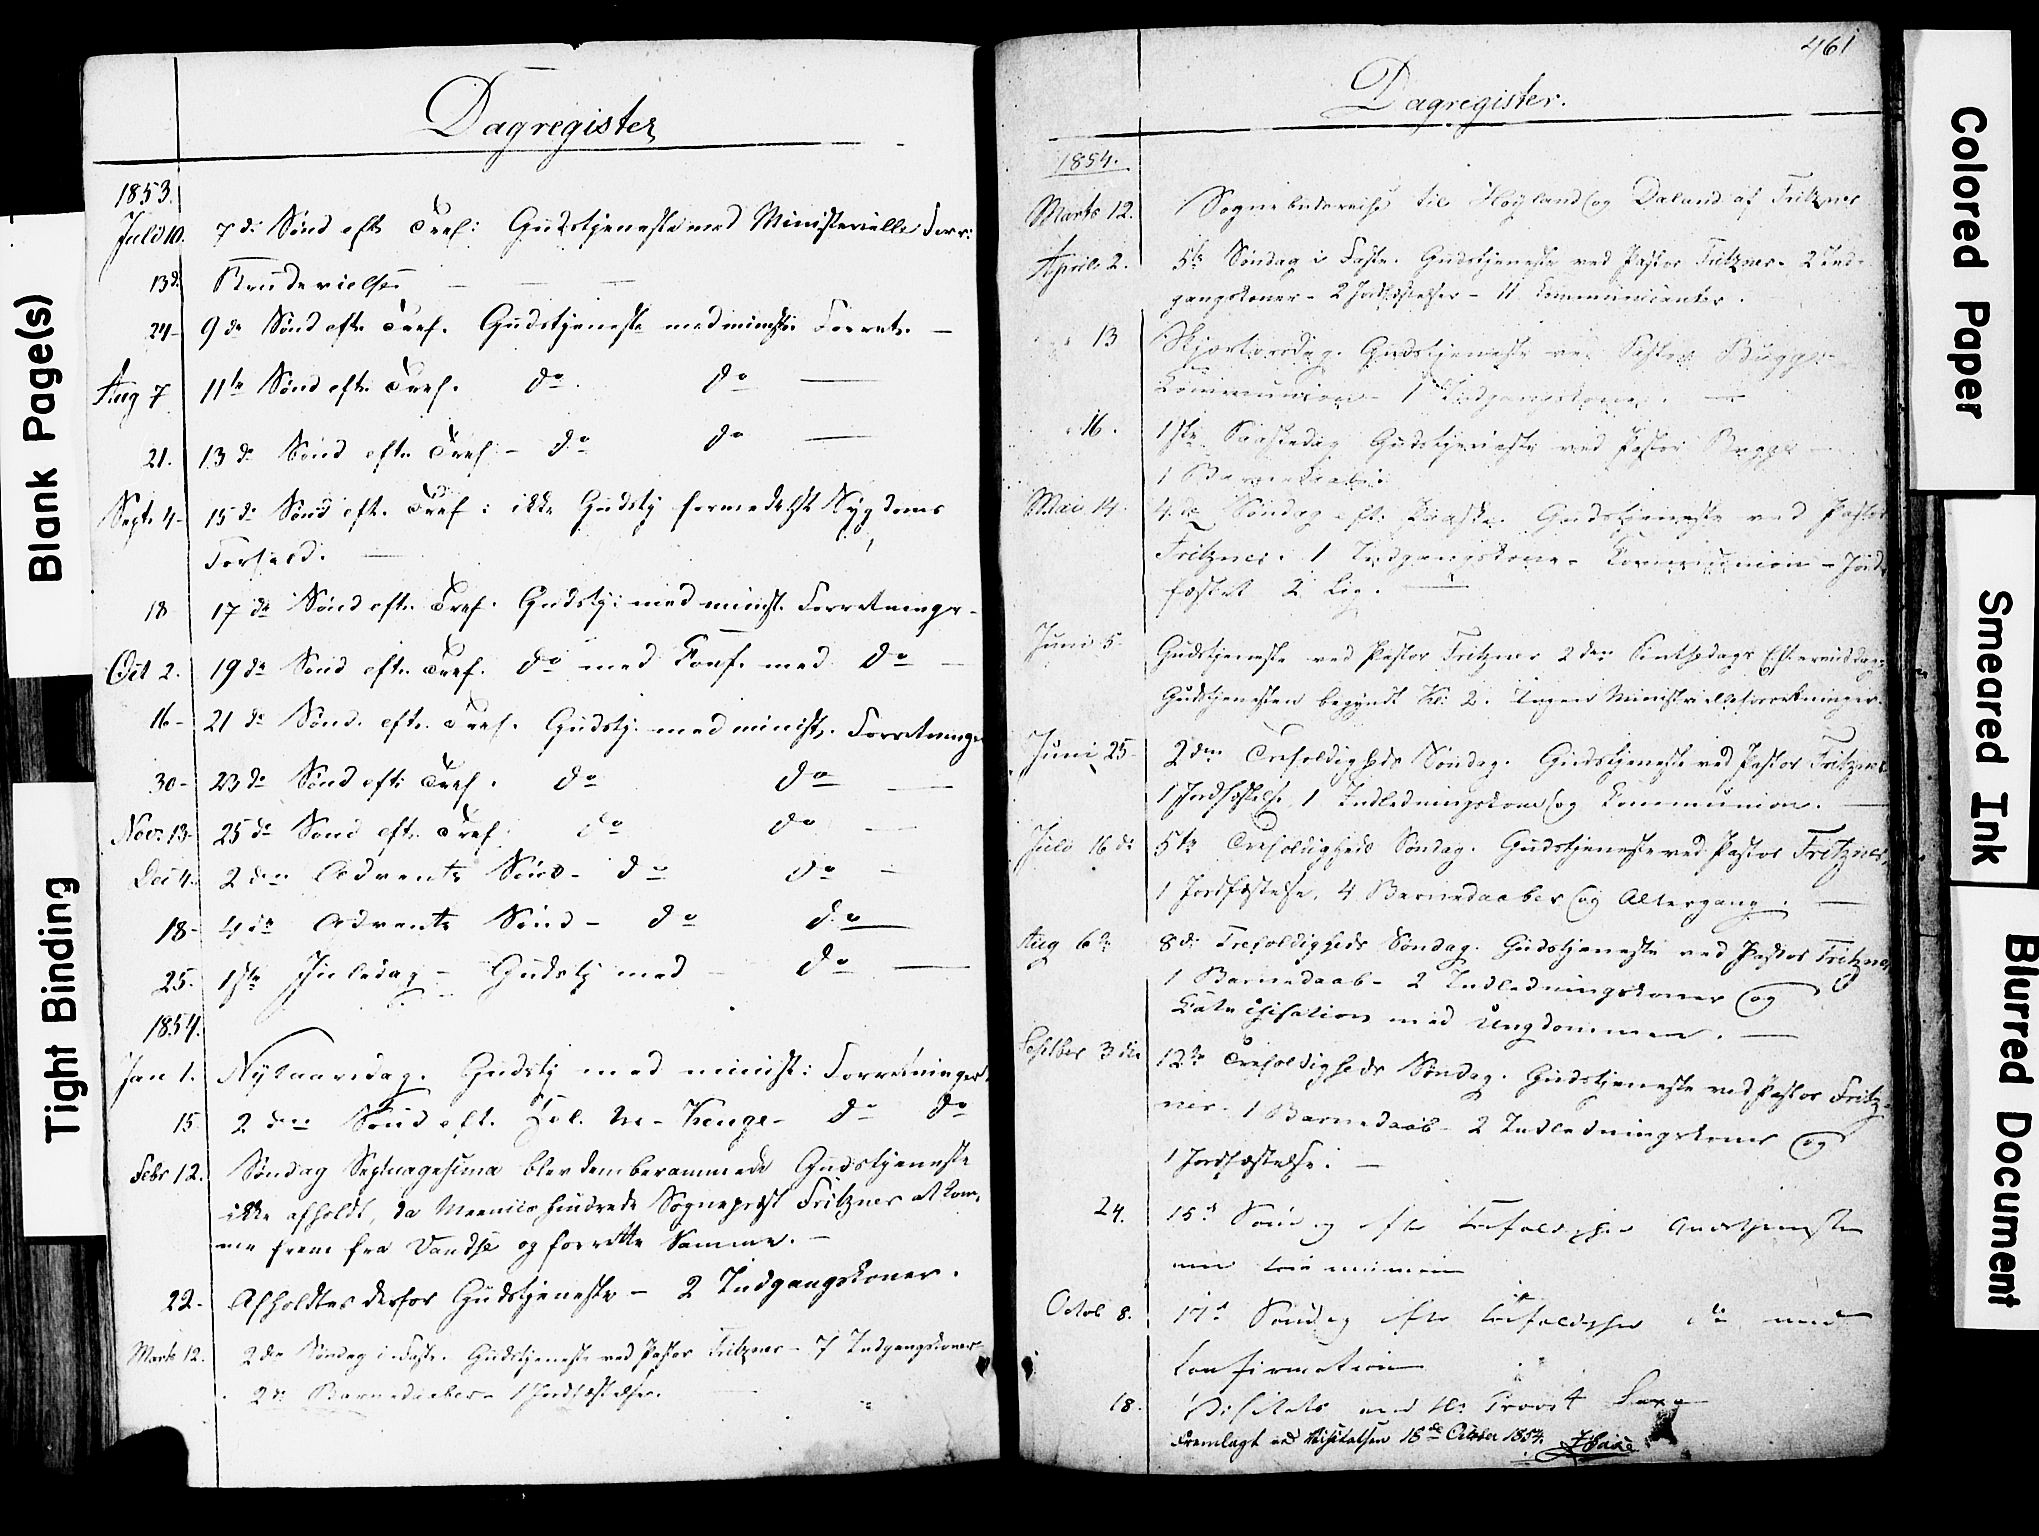 Dagregister
1853.
Juli 10. 7de Sønd eft. Tref: Gudstjeneste med Ministerielle Forr:
13d. Brudevielse
24 - 9de Sønd eft. Tref. Gudstjeneste med minist: Forretn. -
Aug 7 11te Sønd eft. Tref. do do
21. 13de Sønd eft. Tref. - do do
Sept. 4 - 15de Sønd eft. Tref: ikke Gudstj formedelst Sygdoms
Forfald.
18 17de Sønd eft. Tref. Gudstj: med minist. Forretninger -
Oct 2. 19de Sønd eft. Tref. do med Conf. med do
16 - 21de Sønd. eft. Tref. Gudstj. med minist. Forretninger
30 - 23de Sønd eft: Tref. do do
Novr. 13 - 25de Sønd eft. Tref. do do
Dec 4. 2den Advents Sønd - do do -
18 - 4de Advents Sønd - do do
25. 1ste Juledag - Gudstj med - do
1854.
Jan 1. Nytaarsdag. Gudstj med minist: Forretninger
15 2den Sønd eft. Hel. tre-Konge - do do
Febr 12. Søndag Septuagesima blev den berammede Gudstjeneste
ikke afholdt, da hindrede Sognepræst Fritzner at kom-
me frem fra Vandse og forrette Samme. -
22 - Afholdtes derfor Gudstjeneste - 2 Indgangskoner.
Marts 12. 2den Søndag i Faste. Gudstjeneste ved Pastor Fritzner - 7 Indgangskoner -
2 Barnedaaber - 1 Jordfæstelse.
461
Dagregister.
1854.
Marts 12. Sognebesøreise til Høyland og Daland af Fritzner
April 2. 5te Søndag i Faste. Gudstjeneste ved Pastor Fritzner. 2 Ind-
gangskoner - 2 Jordfæstelser - 11 Communicanter.
13 Skjærtorsdag. Gudstjeneste ved Pastor Bugge -
Communion - 1 Indgangskone.
16. 1ste Paaskedag Gudstjeneste ved Pastor Bugge
1 Barnedaab:
Mai 14. 4de Søndag eft: Paaske. Gudstjeneste ved Pastor
Fritzner. 1 Indgangskone - Communion - Jord-
fæstet 2 Lig.
Juni 5 Gudstjeneste ved Pastor Fritzner 2den Pintsedags Eftermiddag.
Gudstjenesten begyndt Kl: 2. Ingen Ministrielleforretninger.
Juni 25 - 2den Trefoldigheds Søndag. Gudstjeneste ved Pastor Fritzner
1 Jordfæstelse, 1 Indledningskone og Communion.
Juli 16de 5te Trefoldigheds Søndag. Gudstjeneste ved Pastor Fritzner,
1 Jordfæstelse, 4 Barnedaaber og Altergang.
Aug 6te 8de Trefoldigheds Søndag. Gudstjeneste ved Pastor Fritzner,
1 Barnedaab - 2 Indledningskoner og
Catechisation med Ungdommen.
Septber 3die 12te Trefoldigheds Søndag. Gudstjeneste ved Pastor Fritz-
ner. 1 Barnedaab - 2 Indledningskoner og
1 Jordfæstelse. -
24. 15d Søndag efter Trefoldighed Gudstjeneste
med Communion
Octob 8. 17d Søndag efter Trefoldighed do med
Confirmation
18. Visitats med Hr Provst
Fremlagt ved Visitatsen 18de October 1854.
Blank Page(s)
Tight Binding
Colored Paper
Smeared Ink
Blurred Document